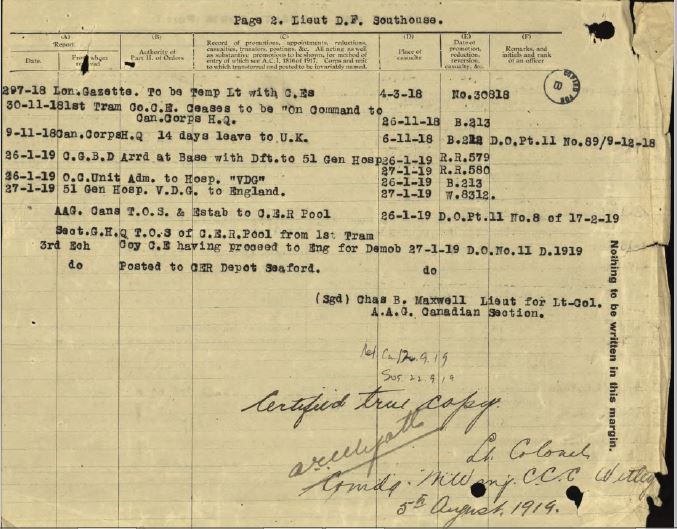 Page 2. Lieut D.F. Southouse.
(A) Report (B) (C) (D) (E) (F)
Date. From whom received Authority of Part II. of Orders Record of promotions, appointments, reductions, casualties, transfers, postings, &c. All acting as well as substantive promotions to be shown, for method of entry of which see A.C.I. 1816 of 1917. Corps and unit to which transferred and posted to be invariably named. Place of casualty Date of promotion, reduction, reversion, casualty, &c. Remarks, and initials and rank of an officer
297-18 Lon.Gazette. To be Temp Lt with C.Es 4-3-18 No.30818
30-11-181st Tram Co.C.E. Ceases to be "On Command to
Can.Corps H.Q. 26-11-18 B.213
9-11-18Can.CorpsH.Q 14 days leave to U.K. 6-11-18 B.212 D.O.Pt.11 No.89/9-12-18
26-1-19 C.G.B.D Arrd at Base with Dft.to 51 Gen Hosp26-1-19 R.R.579
27-1-19 R.R.580
26-1-19 O.C.Unit Adm. to Hosp. "VDG" 26-1-19 B.213
27-1-19 51 Gen Hosp. V.D.G. to England. 27-1-19 W.8312.
AAG. Cans T.O.S. & Estab to C.E.R Pool 26-1-19 D.O.Pt.11 No.8 of 17-2-19
Sect.G.H.Q T.O.S of C.E.R.Pool from 1st Tram
3rd Ech Coy C.E having proceed to Eng for Demob 27-1-19 D.O.No.11 D.1919
do Posted to CER Depot Seaford. do
(Sgd) Chas B. Maxwell Lieut for Lt-Col.
A.A.G. Canadian Section.
22.9.19
Certified true copy.
Lt. Colonel
Comdg. Wing. C.C.C Witley
5th August, 1919.
Nothing to be written in this margin.